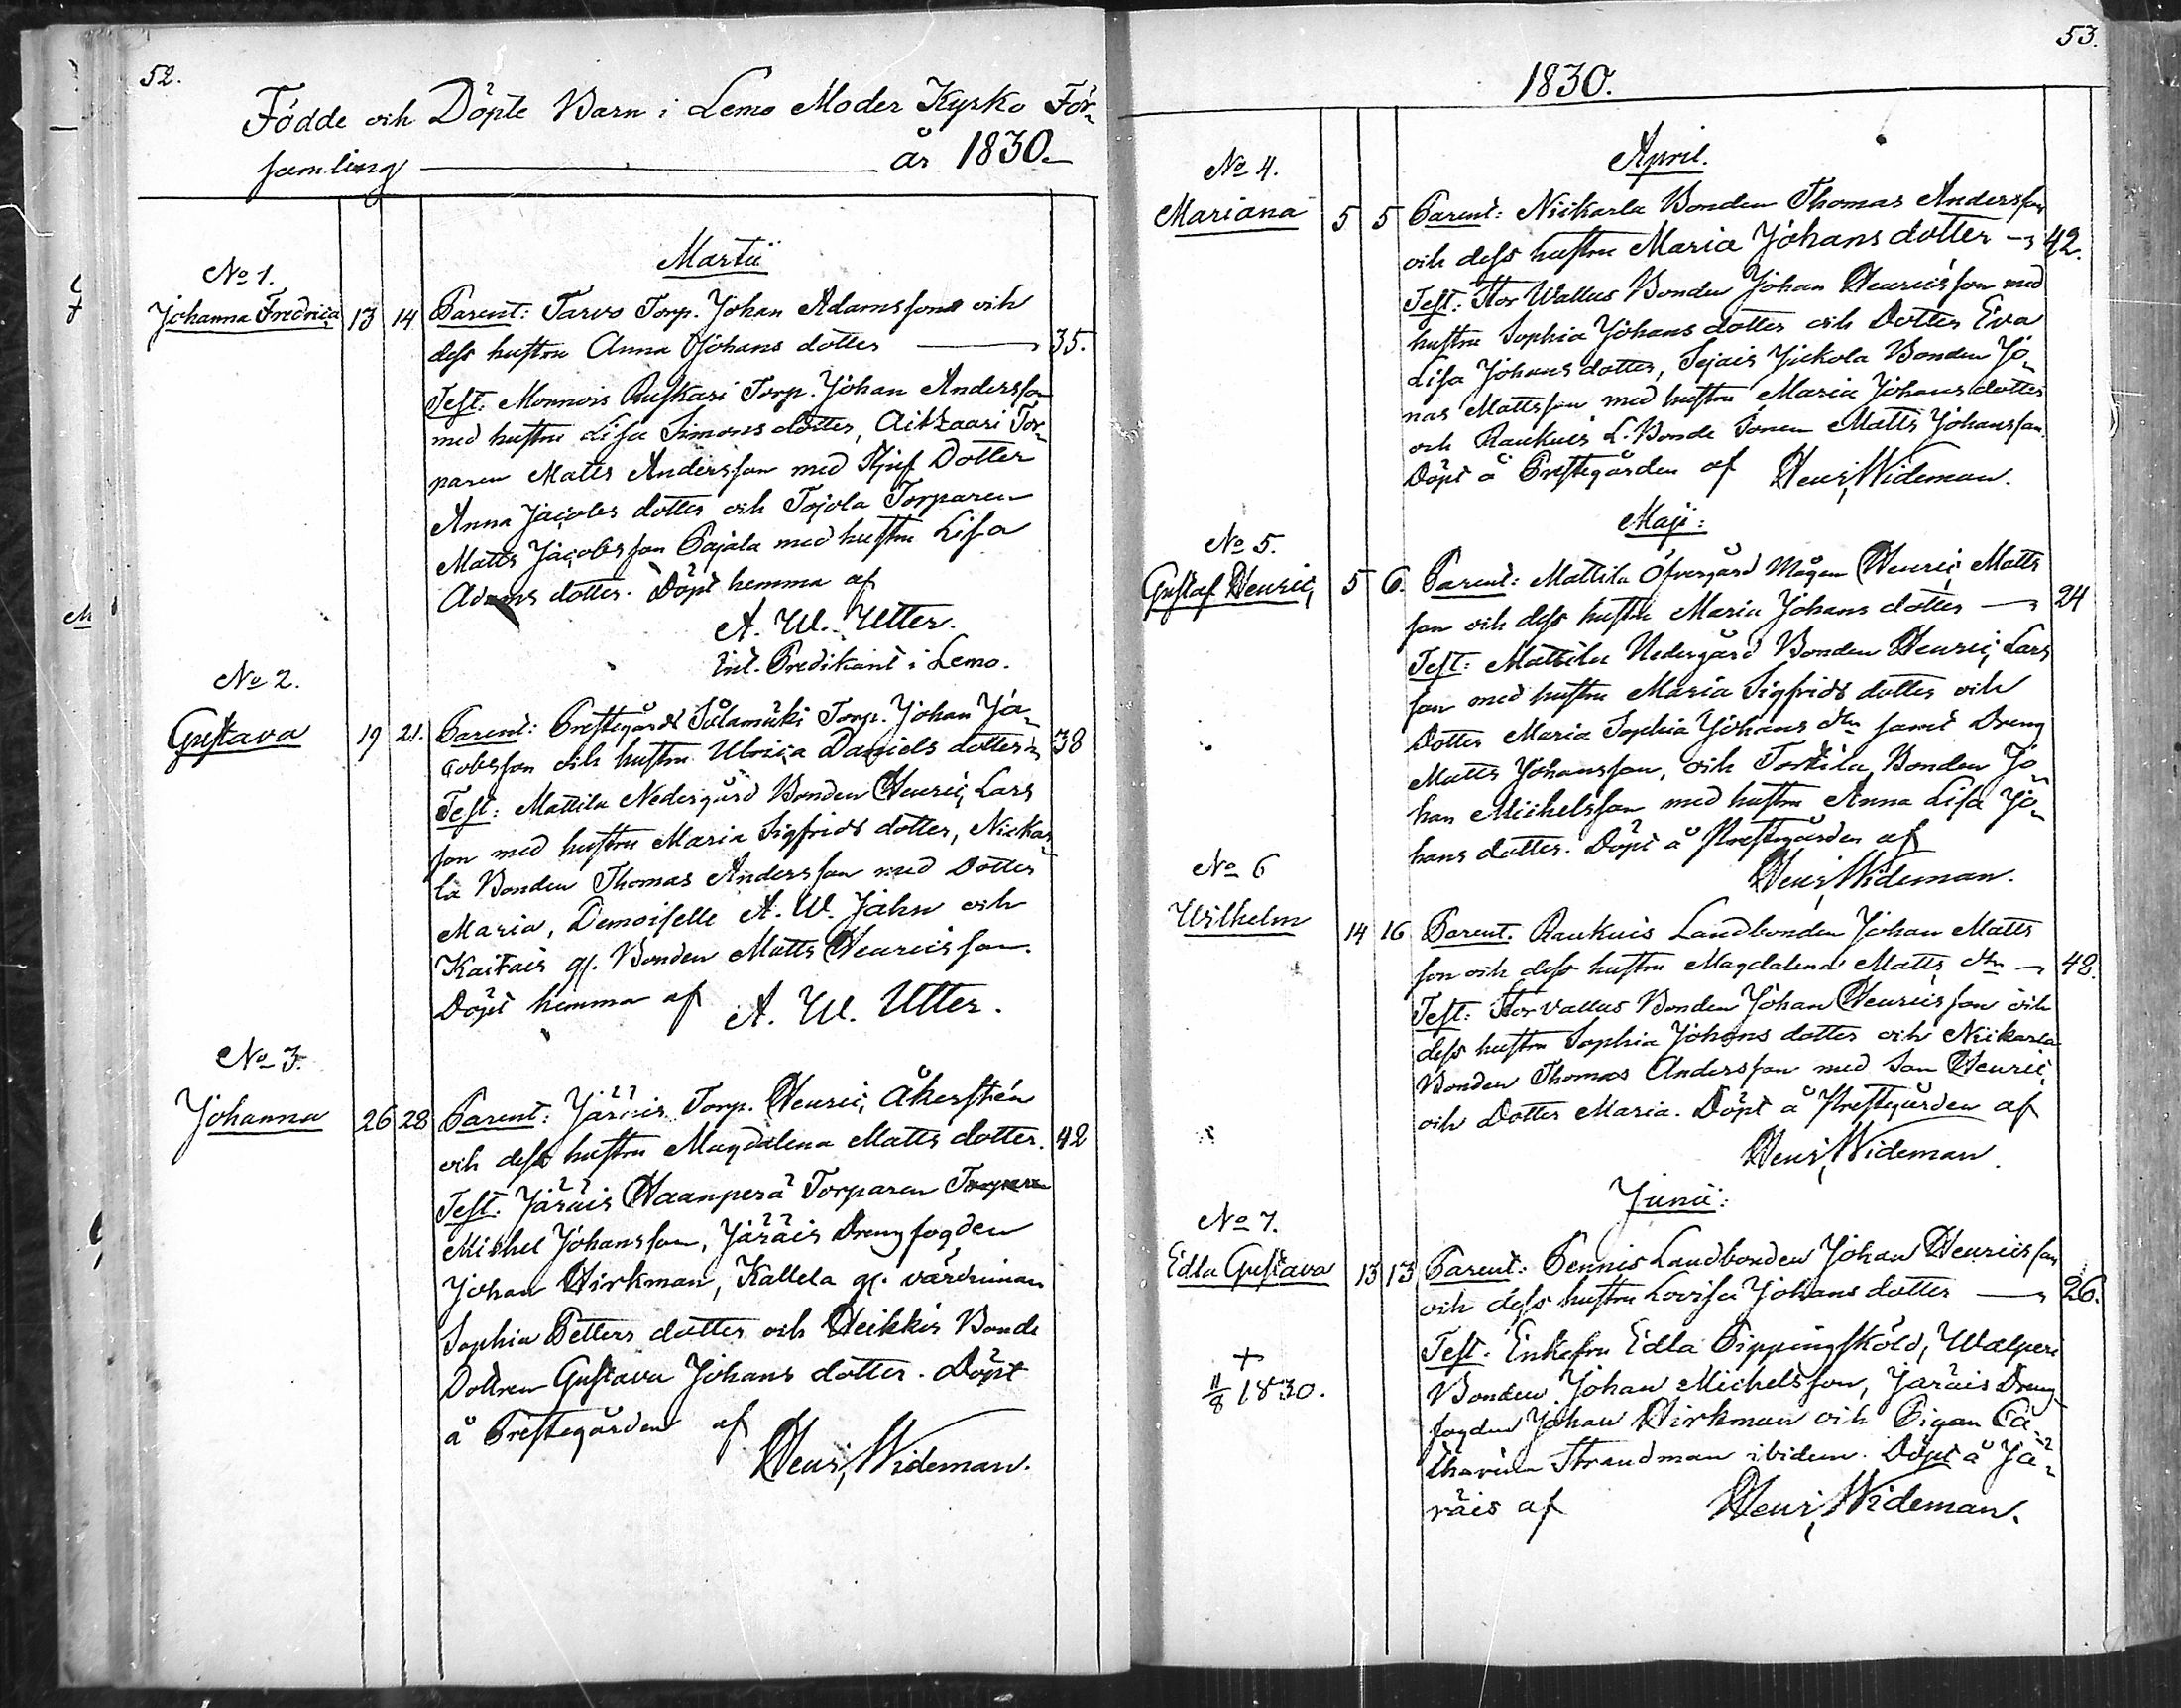 52.
Födde och Döpte Barn i Lemo Moder Kyrko För-
samling år 1830.
Martii
No 1.
Johanna Fredrica 13 14 Parent: Tarvo Torp. Johan Adamsson och
dess hustru Anna Johans dotter 35.
Test: Monnois Ruskari Torp. Johan Andersson
med hustru Lisa Simons dotter, Aitsaari Tor-
paren Matts Andersson med Stjuf Dotter
Anna Jacobs dotter och Tojola Torparen
Matts Jacobsson Pajala med hustru Lisa
Adams dotter. Döpt hemma af
A. W. Utter.
Predikant i Lemo.
No 2.
Gustava 19 21. Parent: Prestegårds Sulamäki Torp. Johan Ja-
cobsson och hustru Ulrica Daniels dotter 38
Test: Mattila Nedergård Bonden Henric Lars
son med hustru Maria Sigfrids dotter, Niekar
la Bonden Thomas Andersson med Dotter
Maria, Demoiselle A. W. Jahn och
Kaitais gl. Bonden Matts Henricsson.
Döpt hemma af A. W. Utter.
No 3.
Johanna 26 28 Parent: Järäis Torp. Henric Åkerstén
och dess hustru Magdalena Matts dotter. 42
Test. Järäis Haanperä Torparen Torparen
Michel Johansson, Järäis Drengfogden
Johan Hirkman, Kallela gl. värdinnan
Sophia Petters dotter och Heikkis Bonde
Dottren Gustava Johans dotter. Döpt
å Prestegården af
Henr. Wideman.
53.
1830.
April.
No 4.
Mariana 5 5 Parent: Niikarla Bonden Thomas Andersson
och dess hustru Maria Johans dotter 42.
Test: Stor Wallus Bonden Johan Henricsson med
hustru Sophia Johans dotter och Dotter Eva
Lisa Johans dotter, Sejais Jickola Bonden Jo-
nas Mattsson med hustru Maria Johans dotter
och Raukuis L. Bonde Sonen Matts Johansson.
Döpt å Prestegården af Henr. Wideman.
Maji:
No 5.
Gustaf Henric, 5 6. Parent: Mattila Öfvergård Mågen Henric Matts
son och dess hustru Maria Johans dotter 24
Test: Mattila Nedergård Bonden Henric Lars
son med hustru Maria Sigfrids dotter och
Dotter Maria Sophia Johans dtr samt Dreng
Matts Johansson, och Torkila Bonden Jo
han Michelsson med hustru Anna Lisa Jo-
hans dotter. Döpt å Prestegården af
Henr. Wideman.
No 6
Wilhelm 14 16 Parent. Raukuis Landbonden Johan Matts
son och dess hustru Magdalena Matts dtr 48.
Test: Stor Vallus Bonden Johan Henricsson och
dess hustru Sophia Johans dotter och Niikarla
Bonden Thomas Andersson med Son Henric
och Dotter Maria. Döpt å Prestegården af
Henr. Wideman.
Junii:
No 7.
Edla Gustava 13 13 Parent: Pennis Landbonden Johan Henricsson
och dess hustru Lovisa Johans dotter 26.
Test. Enkefru Edla Pippingsköld, Walperi
Bonden Johan Michelsson, Järäis Dreng-
fogden Johan Hirkman och Pigan Ca-
tharina Strandman ibidem. Döpt å Jä-
räis af Henr. Wideman.
+
11/8 1830.